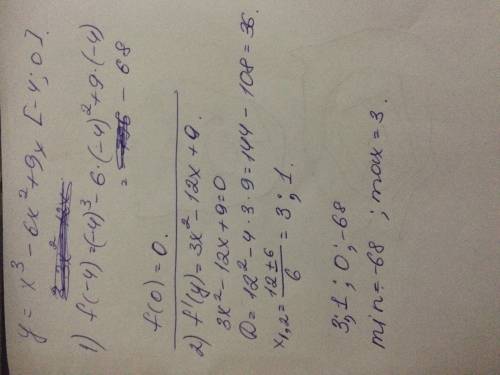 y = x³ - 6x² + 9x [-4; 0].
1) f(-4) = (-4)³ - 6·(-4)² + 9·(-4)
= - 68
f(0) = 0.
2) f'(y) = 3x² - 12x + 9.
3x² - 12x + 9 = 0
D = 12² - 4·3·9 = 144 - 108 = 36.
x₁,₂ = 12±6/6 = 3; 1.
3; 1; 0; -68
min = -68 ; max = 3.